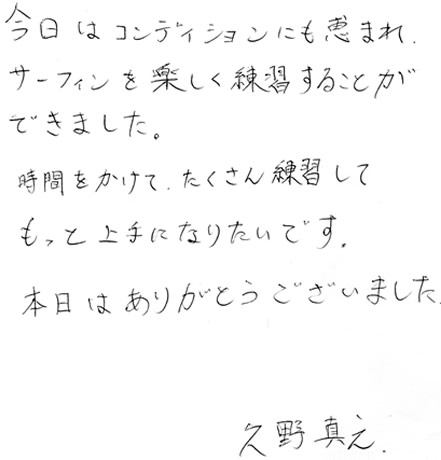 今日はコンディションにも恵まれ.
サーフィンを楽しく練習することが
できました。
時間をかけて.たくさん練習して
もっと上手になりたいです.
本日はありがとうございました.
久野真え.